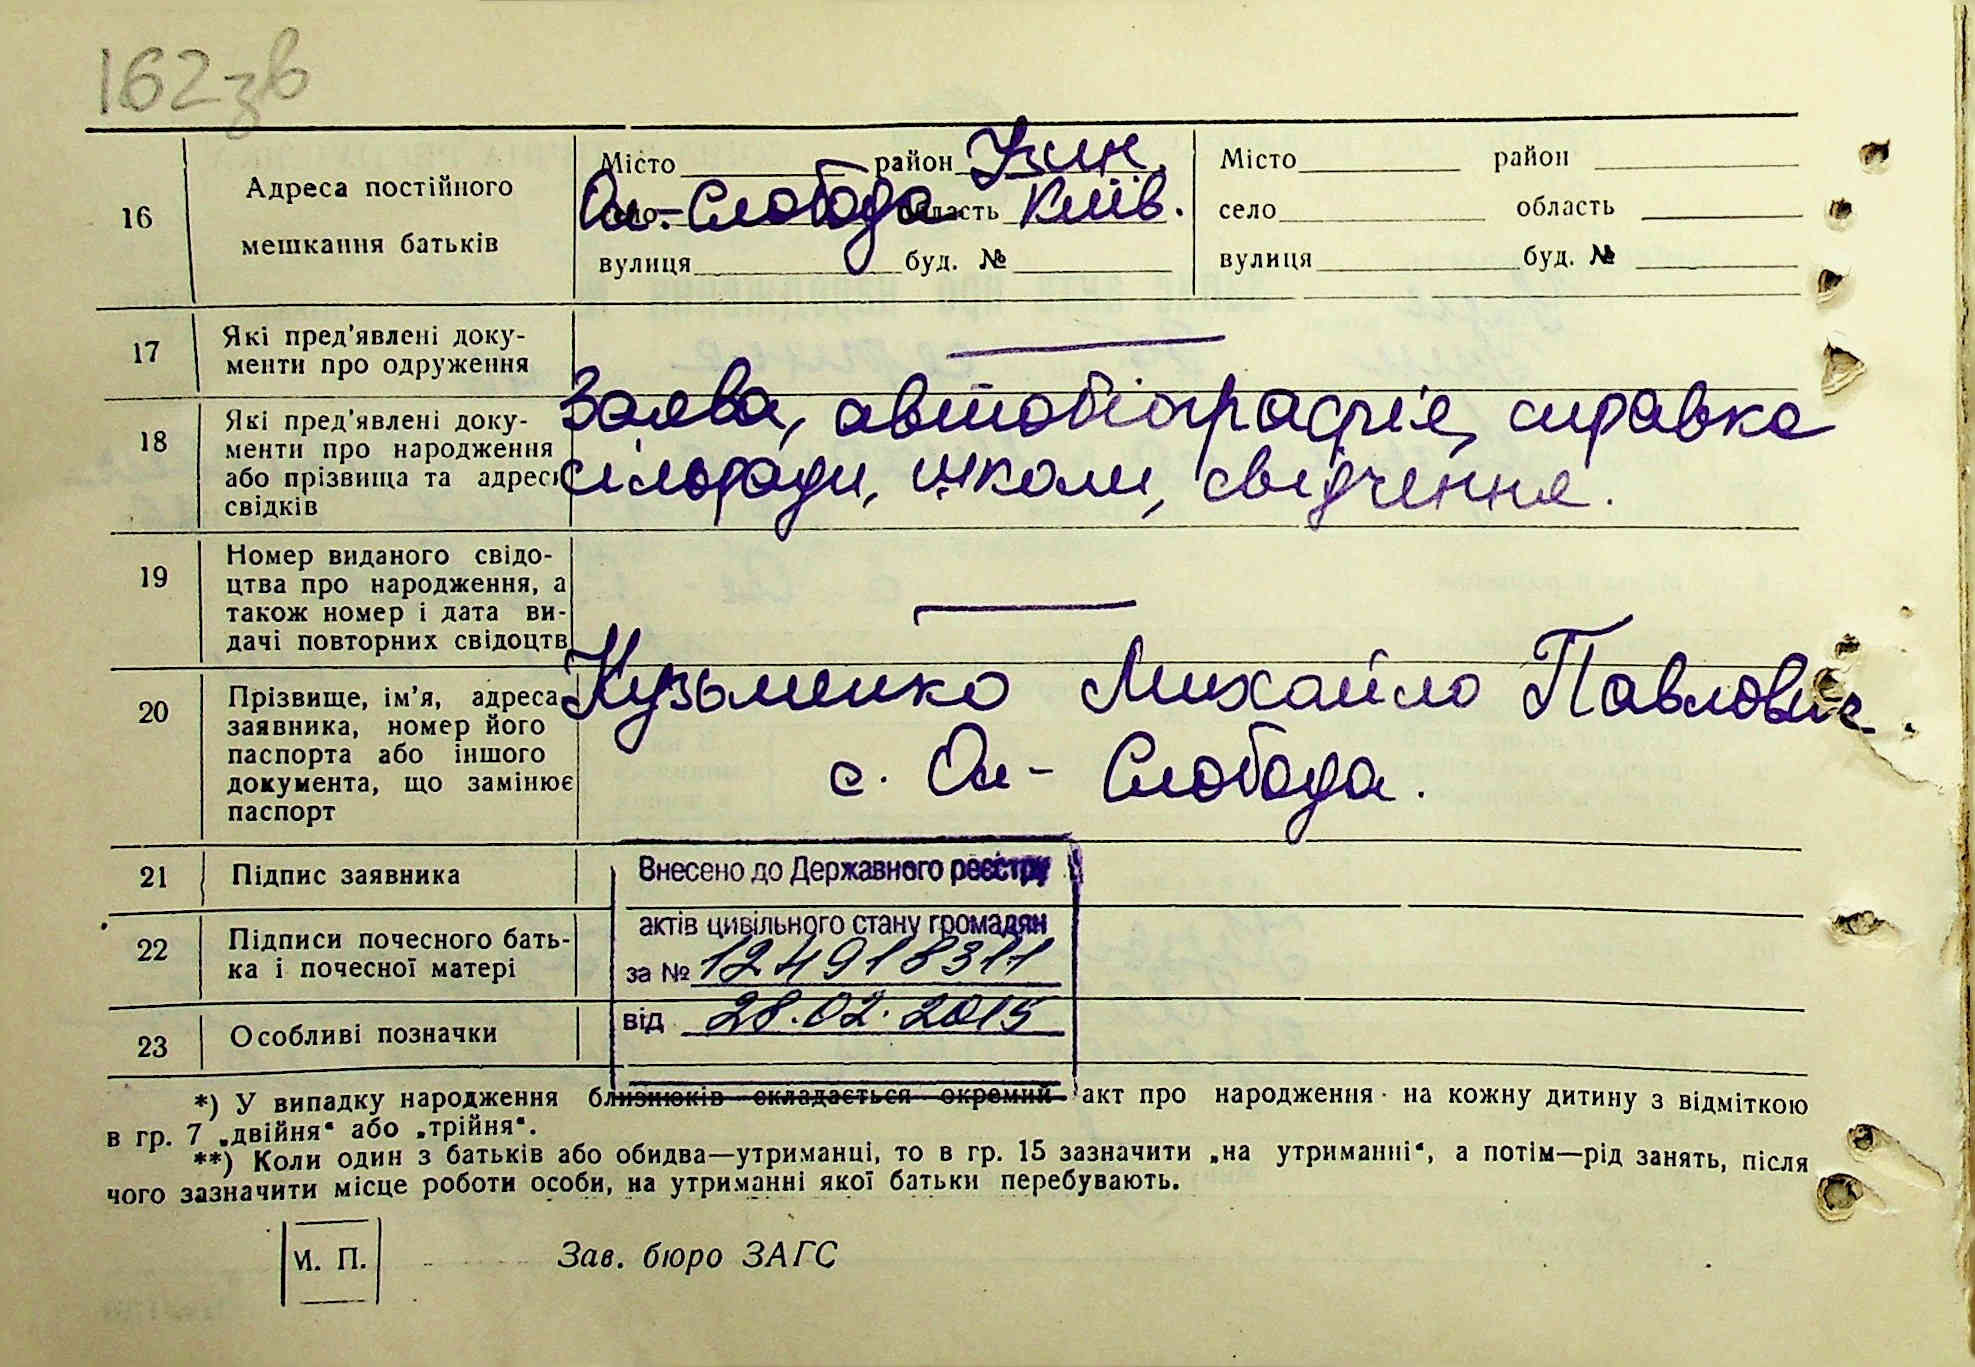 162зв
16
Адреса постійного
мешкання батьків
Місто район Узин.
село Ол.-Слобода область Київ.
вулиця буд. №
Місто район
село область
вулиця буд. №
17
Які пред'явлені доку-
менти про одруження
18
Які пред'явлені доку-
менти про народження
або прізвища та адреси
свідків
Заява, автобіографія, справка
сільради, школи, свідчення.
19
Номер виданого свідо-
цтва про народження, а
також номер і дата ви-
дачі повторних свідоцтв
20
Прізвище, ім'я, адреса
заявника, номер його
паспорта або іншого
документа, що замінює
паспорт
Кузьменко Михайло Павлович.
с. Ол-Слобода.
21
Підпис заявника
22
Підписи почесного бать-
ка і почесної матері
23
Особливі позначки
Внесено до Державного реєстру
актів цивільного стану громадян
за № 124918311
від 28.02.2015
*) У випадку народження близнюків складається окремий акт про народження на кожну дитину з відміткою
в гр. 7 „двійня“ або „трійня“.
**) Коли один з батьків або обидва—утриманці, то в гр. 15 зазначити „на утриманні“, а потім—рід занять, після
чого зазначити місце роботи особи, на утриманні якої батьки перебувають.
М. П.
Зав. бюро ЗАГС